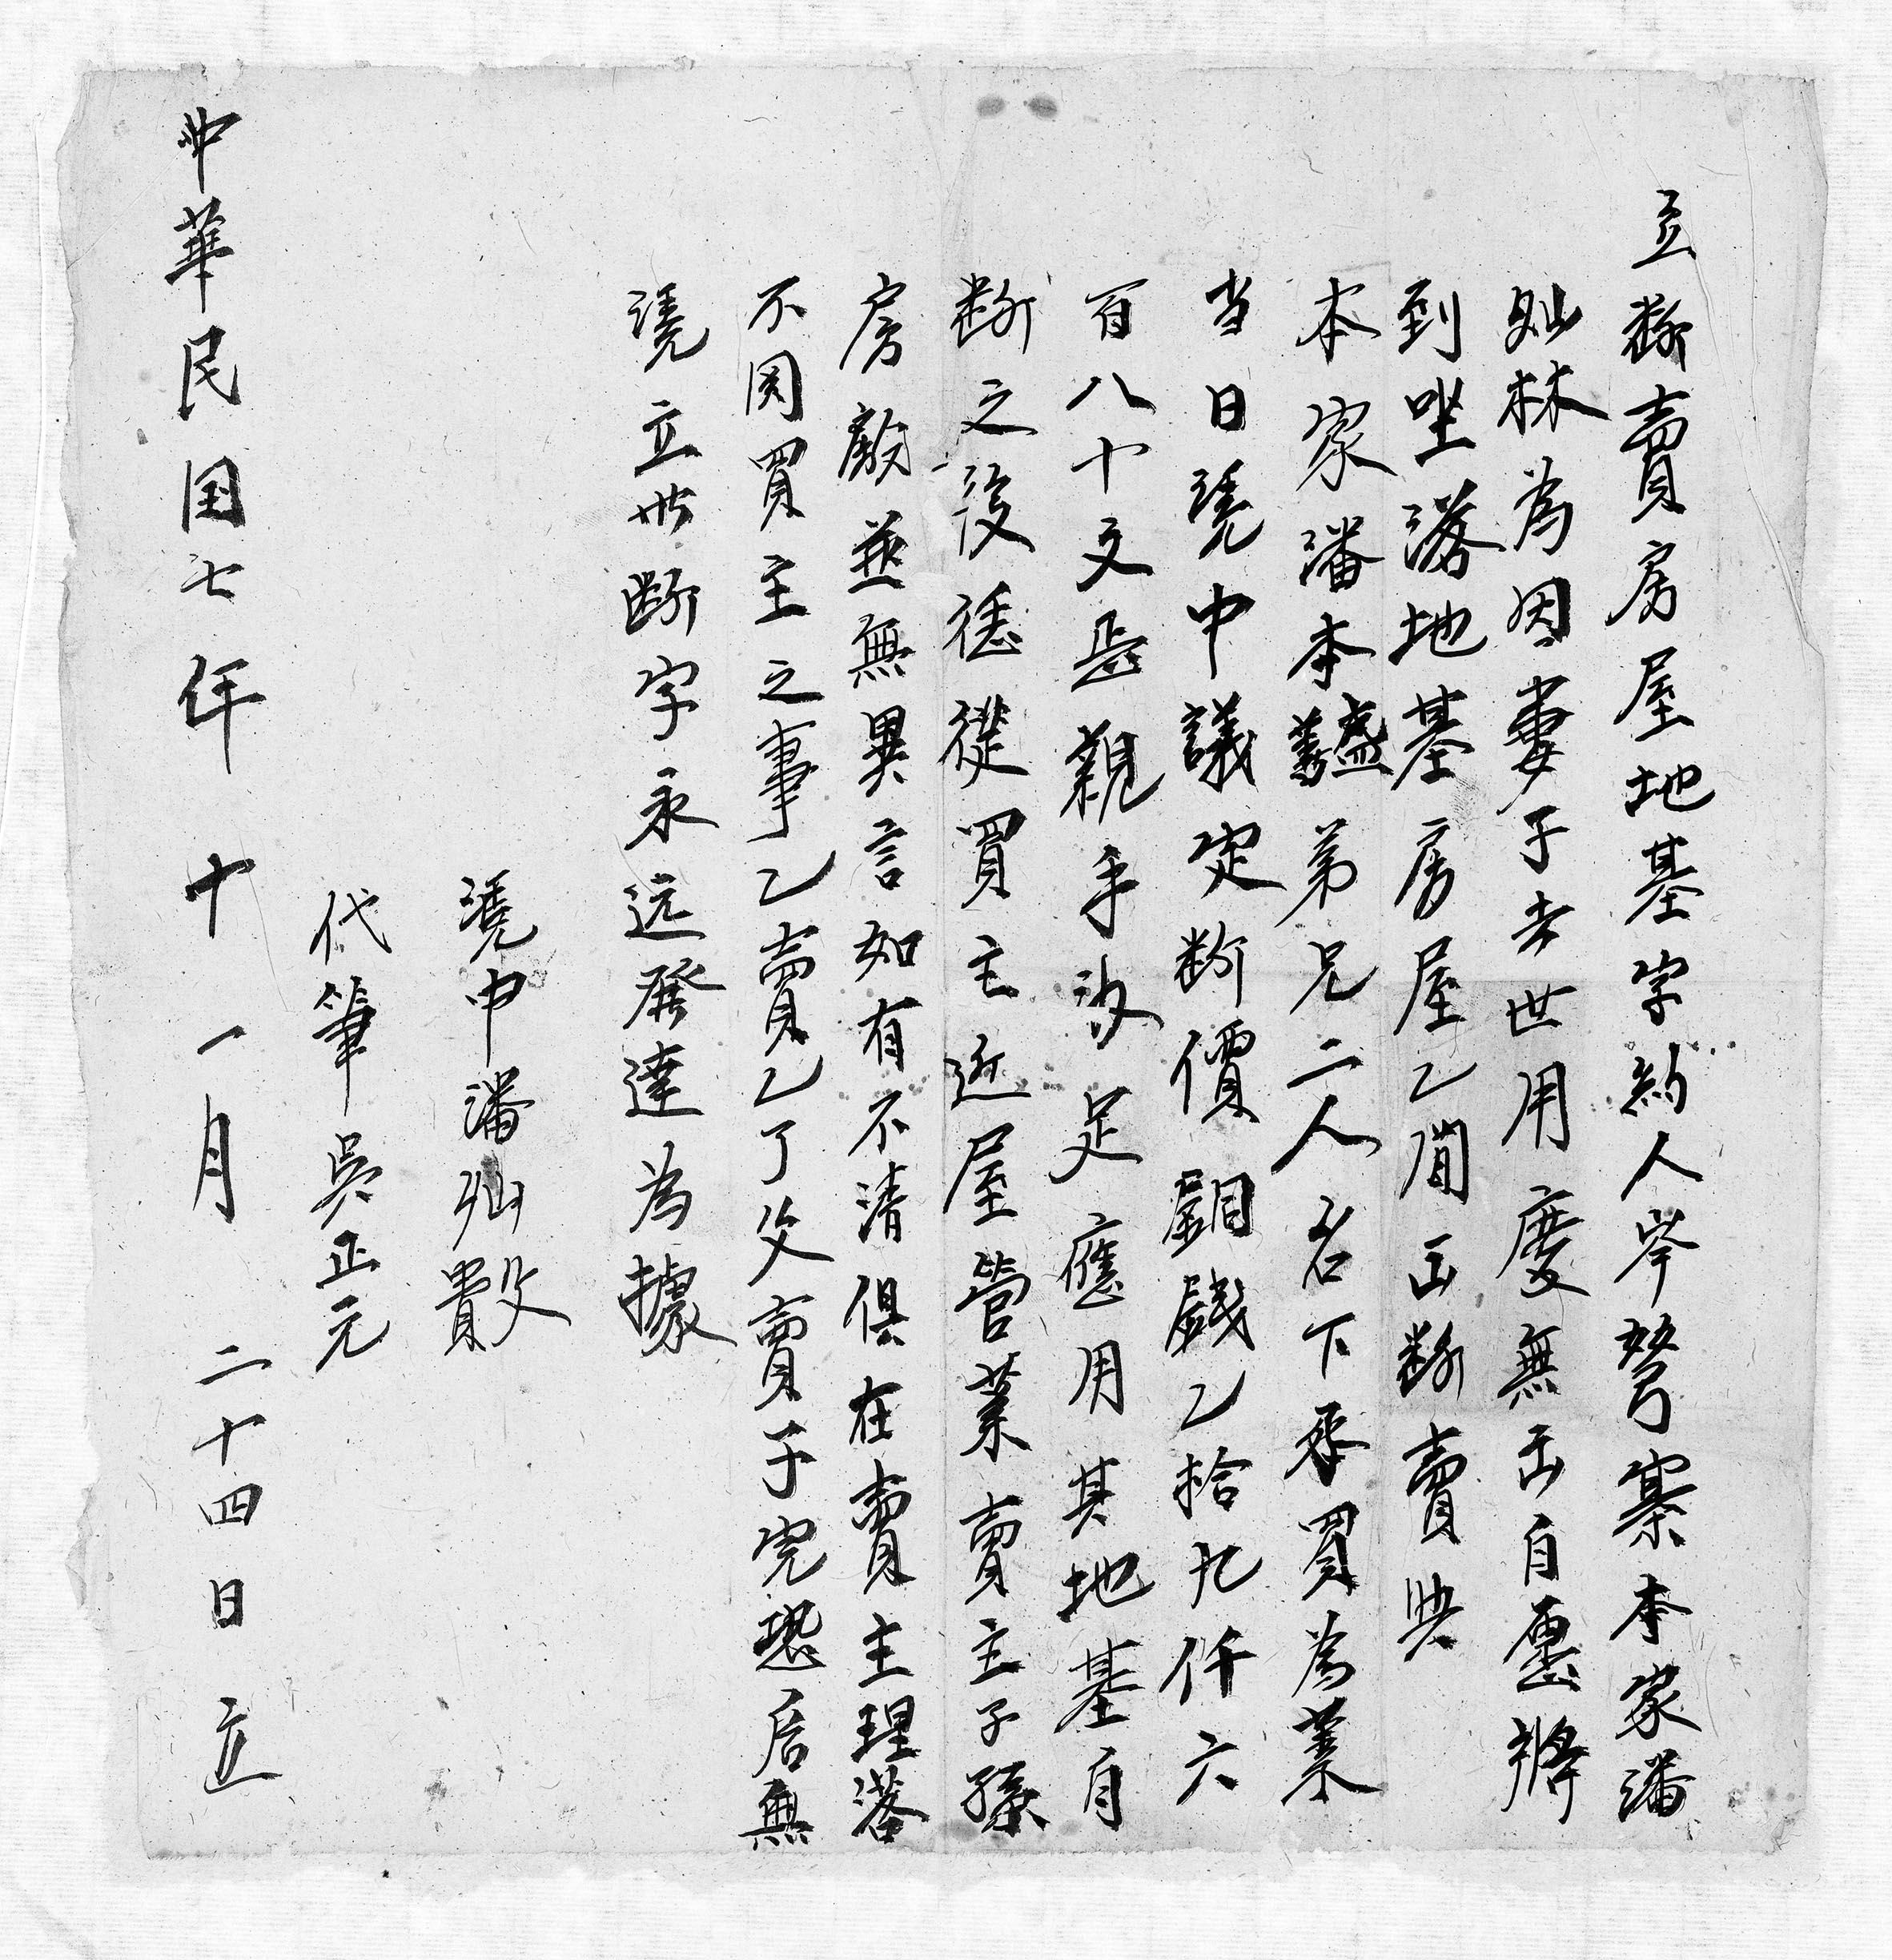 立斷賣房屋地基字約人岑弩寨本家潘
灿林為因妻子去世用度無出自愿將
到坐落地基房屋乙間出斷賣與
本家潘本弟兄二人名下承買為業
当日凴中議定断價銅錢乙拾九仟六
百八十文正親手收足應用其地基自
断之後任從買主近屋管業賣主子孫
房族並無異言如有不清俱在賣主理落
不関買主之事乙賣乙了父賣子完恐后無
凴立此断字永远發達為據
凴中潘仙
代筆吳正元
中華民国七年十一月二十四日立